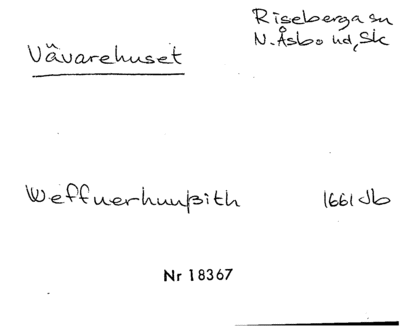 Riseberga sn
Vävarehuset
N. Åsbo hd, Sk
Weffuerhuußith 1661 Jb
Nr 18367